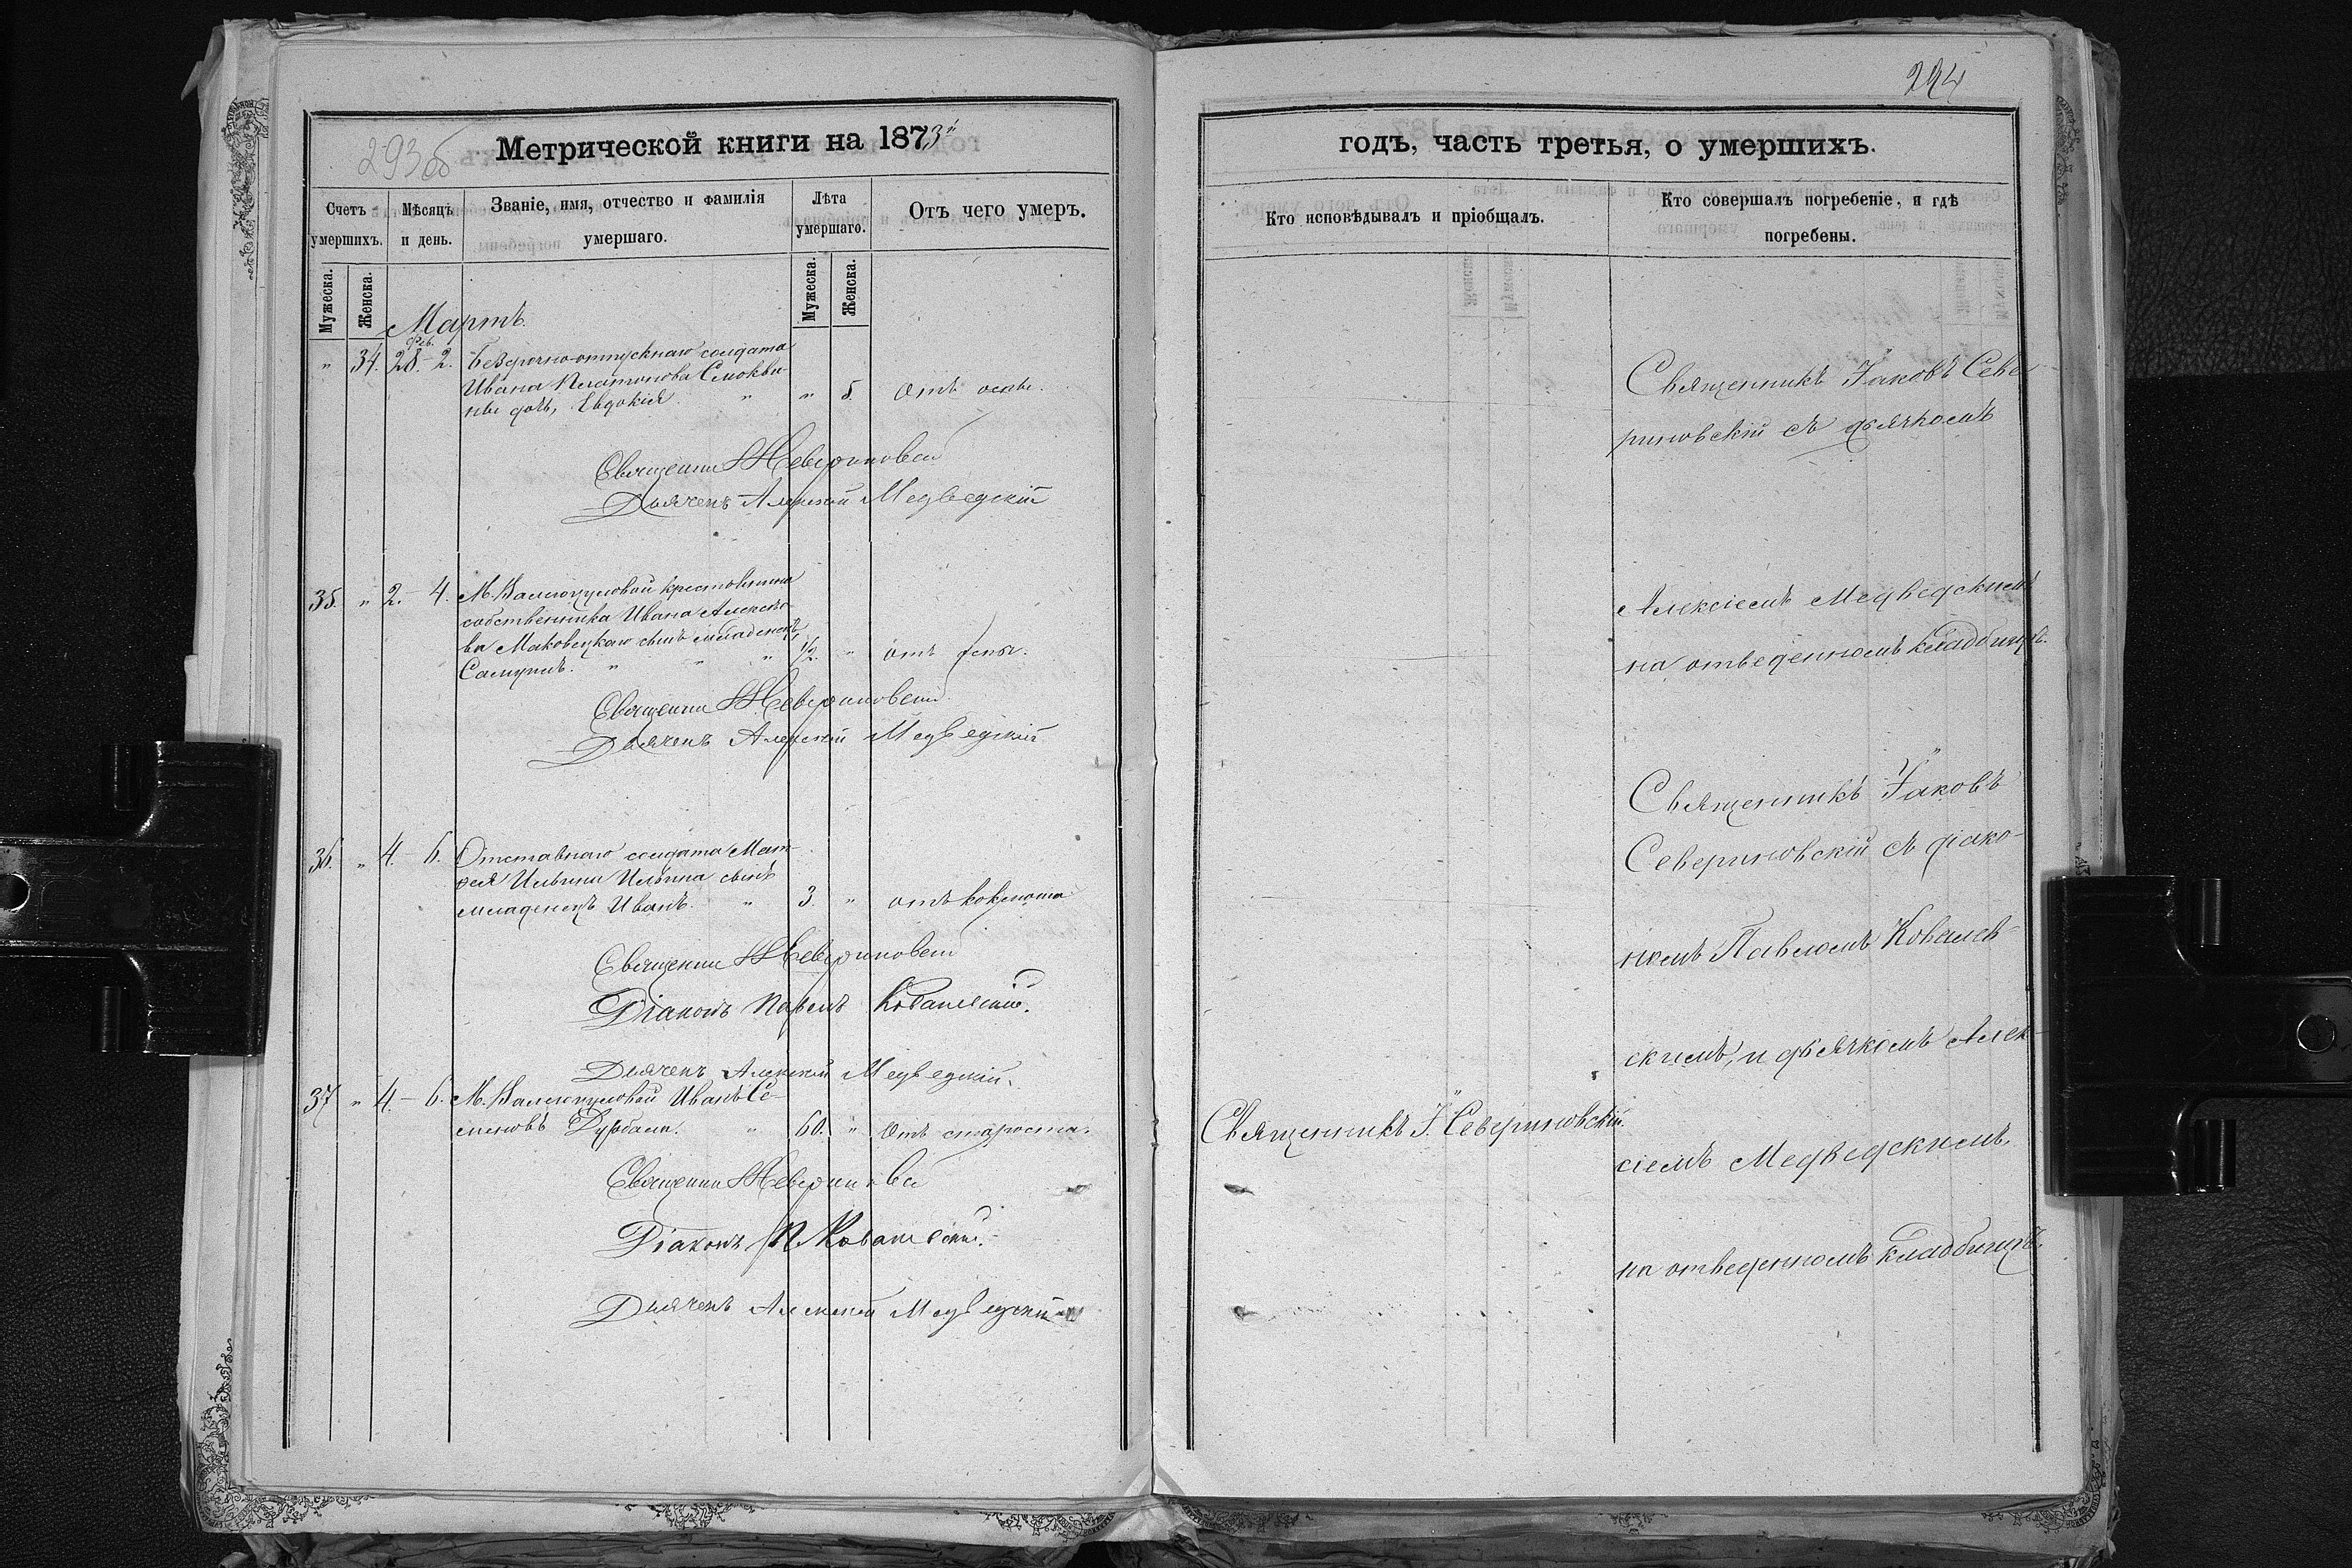 293об
Метрической книги на 1873й
Счетъ умершихъ.
Мѣсяцъ и день.
Званіе, имя, отчество и фамилія умершаго.
Лѣта умершаго.
Отъ чего умеръ.
Мужеска.
Женска.
Мужеска.
Женска.
Мартъ.
Фев.
" 34. 28.-2. Безсрочно-отпускнаго солдата
Ивана Платонова Смокви-
ны дочь, Евдокія. " " 5. Отъ оспы.
Священник Севериновскій
Дьячекъ Алексѣй Медвѣдскій
35. " 2.-4. М. Валегоцуловой крестьянина
собственника Ивана Алексѣе-
ва Маковецкаго сынъ младенецъ,
Самуилъ. " " " 1/2. " отъ оспы.
Священник Севериновскій
Дьячекъ Алексѣй Медвѣдскій
36. " 4.-6. Отставнаго солдата Мат-
ѳея Ильина сынъ
младенецъ Иванъ. " 3. " отъ коклюша
Священник Севериновскій
Діаконъ Павелъ Ковалевскій.
Дьячекъ Алексѣй Медвѣдскій.
37 " 4.-6. М. Валегоцуловой Иванъ Се-
меновъ Дурбала. " 60. " Отъ старости.
Священник Севериновскій
Діаконъ П Ковалевскій.
Дьячекъ Алексѣй Медвѣдскій
294
годъ, часть третья, о умершихъ.
Кто исповѣдывалъ и пріобщалъ.
Кто совершалъ погребеніе, и гдѣ погребены.
Священникъ Іаковъ Севе-
риновскій съ дьячкомъ
Алексіемъ Медвѣдскимъ
на отведенномъ кладбищѣ.
Священникъ Іаковъ
Севериновскій съ діако-
номъ Павломъ Ковалев-
скимъ, и дьячкомъ Алек-
Священникъ І. Севериновскій.
сіемъ Медвѣдскимъ,
на отведенномъ кладбищѣ.